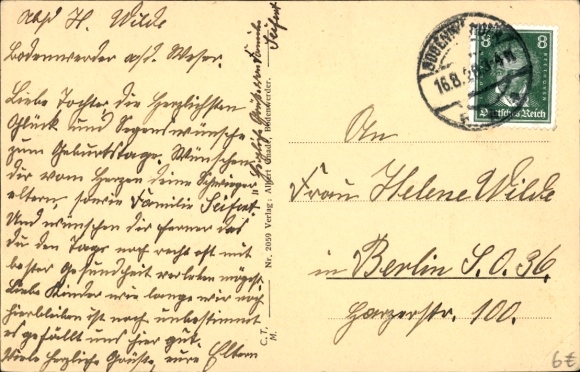 Abs. H. Wilde
Bodenwerder a/d. Weser.
Liebe Tochter die Herzlichsten
Glück und Segenswünsche
zum Geburtstage. Wünschen
dir vom Herzen deine Schwieger
eltern, sowie Familie Seifert.
Und wünschen dir ferner das
du den Tag noch recht oft mit
bester Gesundheit verleben mögest
Liebe Kinder wie lange wir noch
hierbleiben ist noch unbestimmt
es gefällt uns hier gut.
Viele Herzliche Grüße, eure Eltern
Herzliche Grüße von Familie
Seifert
C. T. M.
Nr. 2059 Verlag: Albert Bode, Bodenwerder.
BODENWERDER
16.8.
8 8
Deutsches Reich
An
Frau Helene Wilde
in Berlin S. O. 36,
Harzerstr. 100.
6€